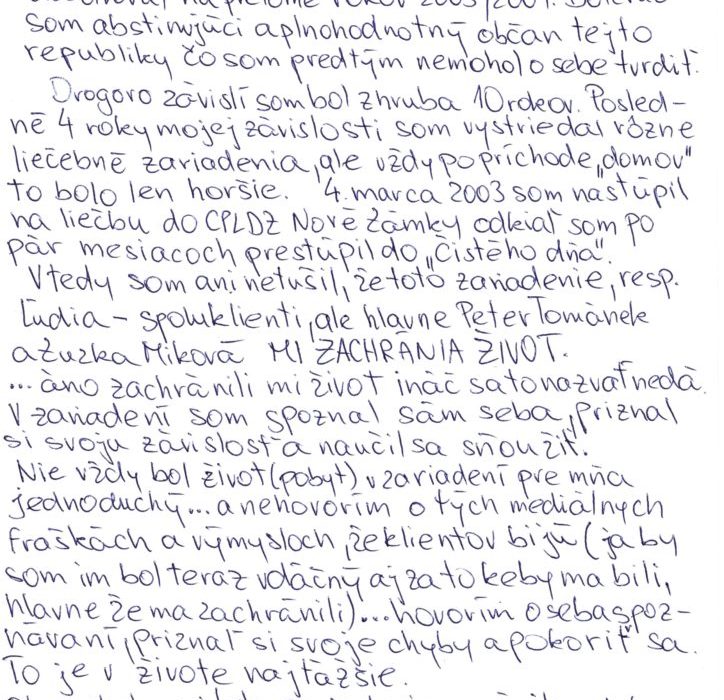 som abstinujúci a plnohodnotný občan tejto
republiky čo som predtým nemohol o sebe tvrdiť.
Drogovo závislí som bol zhruba 10 rokov. Posled-
né 4 roky mojej závislosti som vystriedal rôzne
liečebné zariadenia, ale vždy po príchode „domov"
to bolo len horšie. 4. marca 2003 som nastúpil
na liečbu do CPLDZ Nové Zámky odkiaľ som po
pár mesiacoch prestúpil do „Čistého dňa".
Vtedy som ani netušil, že toto zariadenie, resp.
Ľudia - spoluklienti, ale hlavne Peter Tománek
a Zuzka Miková MI ZACHRÁNIA ŽIVOT.
... áno zachránili mi život ináč sa to nazvať nedá.
V zariadení som spoznal sám seba, priznal
si svoju závislosť a naučil sa s ňou žiť.
Nie vždy bol život (pobyt) v zariadení pre mňa
jednoduchý... a nehovorím o tých mediálnych
fraškách a výmysloch, že klientov bijú (ja by
som im bol teraz vďačný aj za to keby ma bili,
hlavne že ma zachránili)... hovorím o sebaspoz-
návaní, priznať si svoje chyby a pokoriť sa.
To je v živote najťažšie.